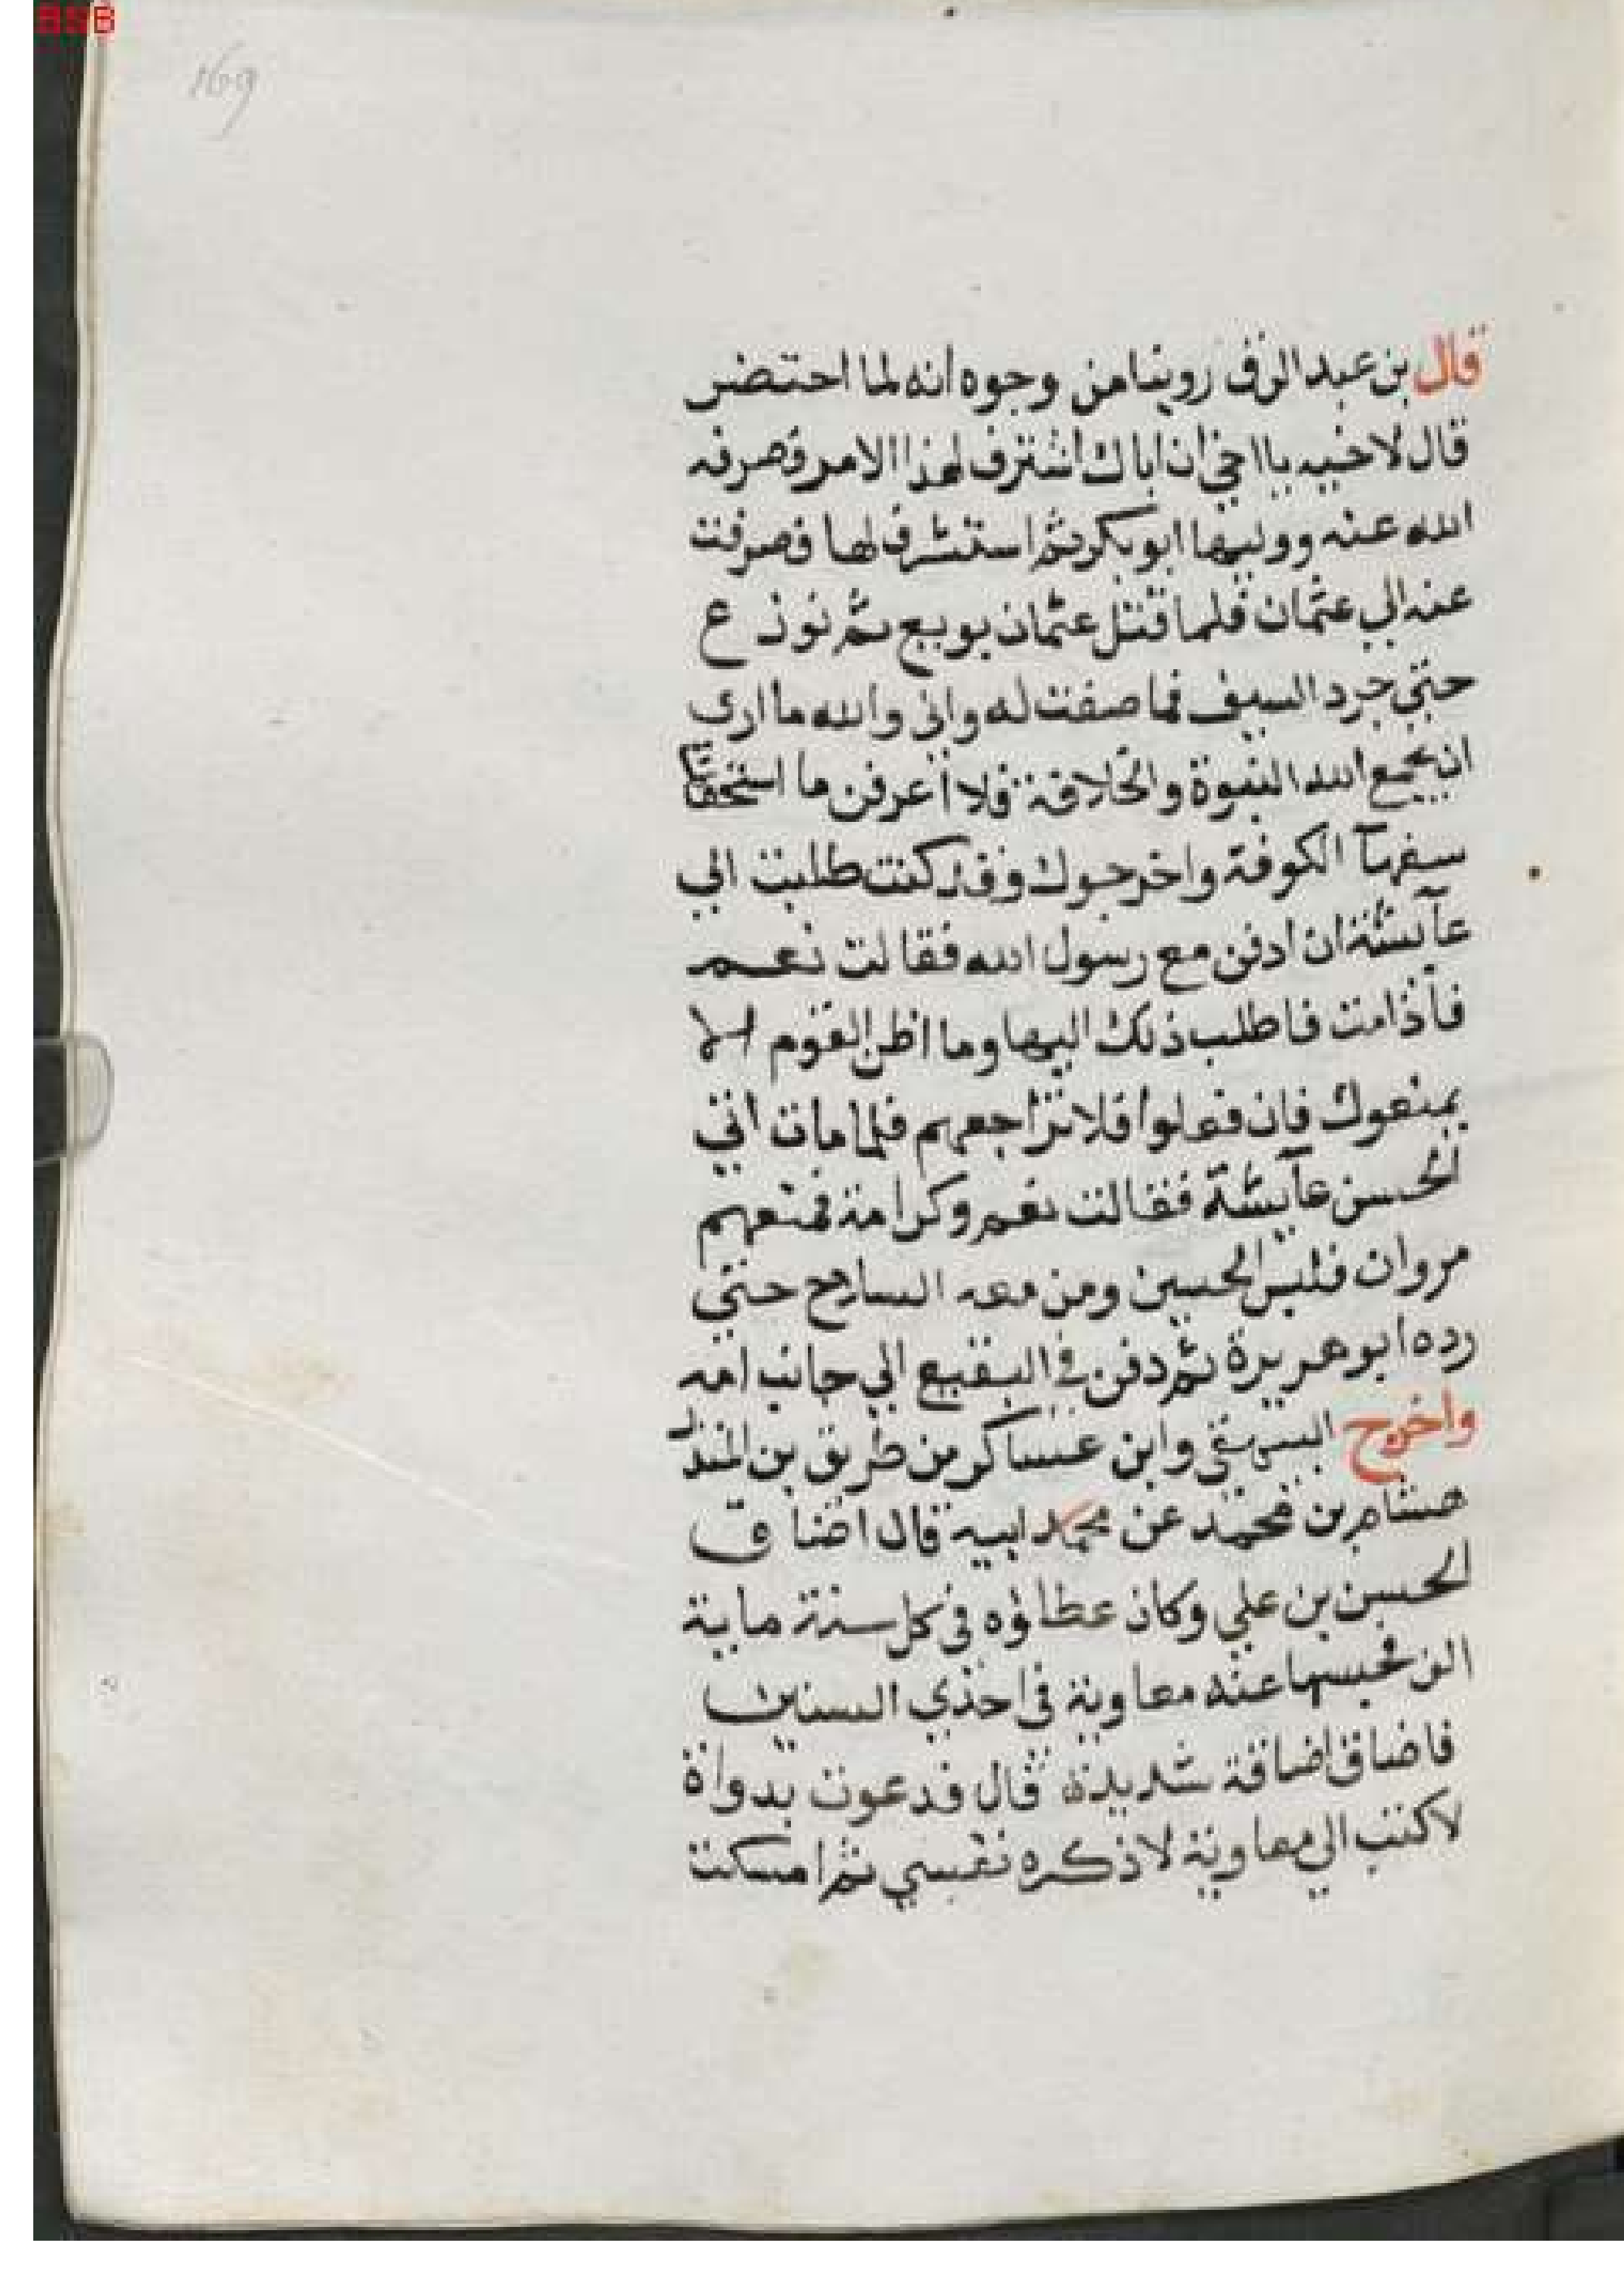 BSB
169
قال بن عبد البر في روينا من وجوه انه لما احتضر
قال لاخيه يا اخي ان اباك اشترف لهذا الامر فصرفه
الله عنه ووليها ابو بكر ثم استشرف لها فصرفت
عنه الي عثمان فلما قتل عثمان بويع ثم نوزع
حتي جرد السيف فما صفت له واني والله ما اري
ان يجمع الله النبوة والخلافة فلا أعرفن ما استخفك
سفهآ الكوفة واخرجوك وقد كنت طلبت الي
عآيشة ان ادفن مع رسول الله فقالت نعم
فأذا مت فاطلب ذلك اليها وما اظن القوم الا
يمنعوك فان فعلوا فلا تراجعهم فلما مات اتي
الحسن عآيشة فقالت نعم وكرامة فمنعهم
مروان فلبس الحسين ومن معه السلاح حتي
رده ابو هريرة ثم دفن في البقيع الي جانب امه
واخرج البيهقي وابن عساكر من طريق بن المنذر
هشام بن محمد عن محمد ابيه قال اضاق
الحسن بن علي وكان عطاؤه في كل سنة ماية
الف فحبسها عنه معاوية في احدي السنين
فاضاق اضاقة شديدة قال فدعوت بدواة
لاكتب الي معاوية لاذكره نفسي ثم امسكت